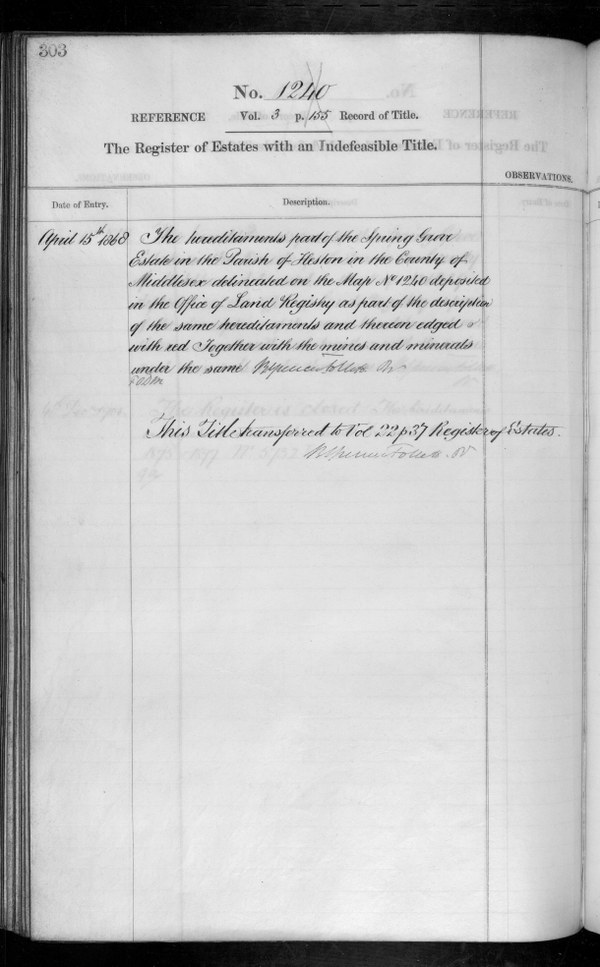 303
No. 1240
REFERENCE Vol. 3 p. 155 Record of Title.
The Register of Estates with an Indefeasible Title.
OBSERVATIONS.
Date of Entry. Description.
April 15th 1868 The hereditaments part of the Spring Grove
Estate in the Parish of Heston in the County of
Middlesex delineated on the Map No 1240 deposited
in the Office of Land Registry as part of the description
of the same hereditaments and thereon edged
with red Together with the mines and minerals
under the same BSpencer Follett Rr
This Title transferred to Vol 22 p 37 Register of Estates.
BSpencer Follett Rr